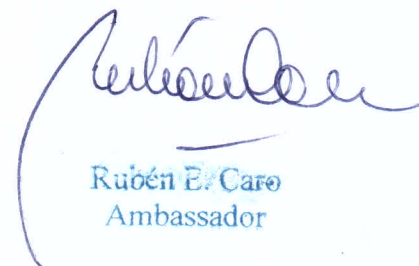 Rubén E. Caro
Ambassador